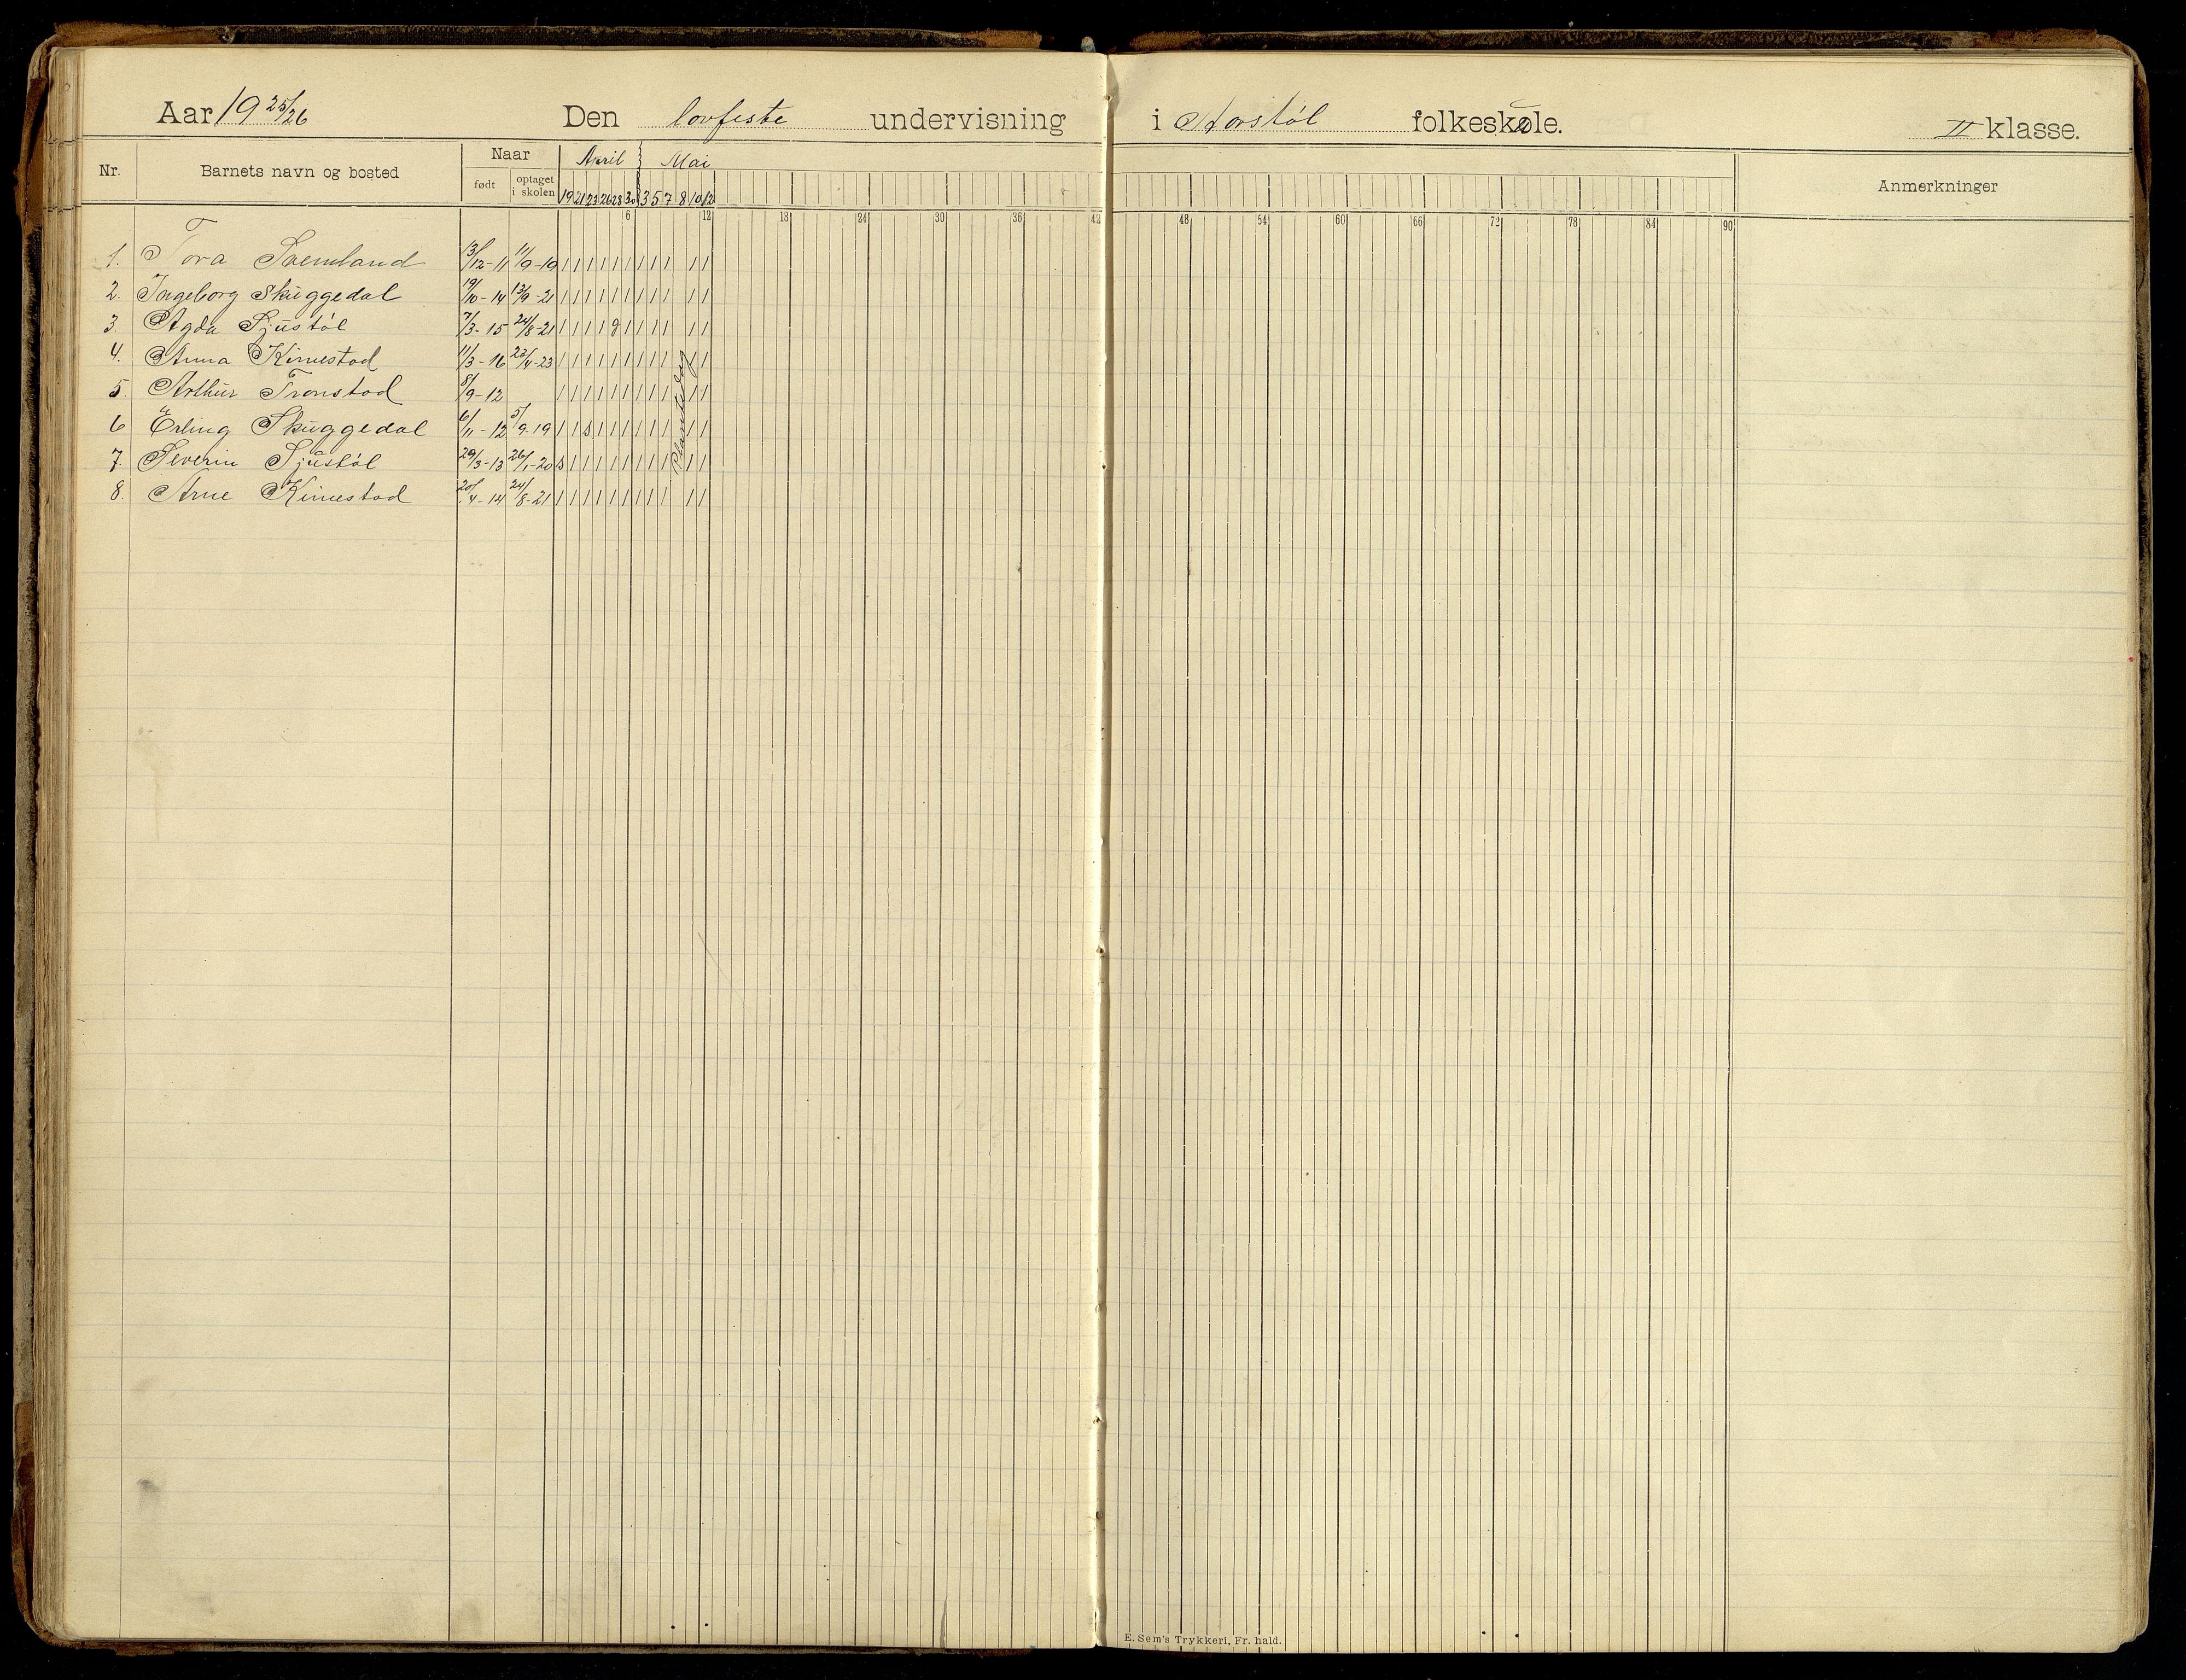 Aar 19 25/26 Den lovfeste undervisning i Storstøl folkeskole. II klasse.
Nr. Barnets navn og bosted Naar April Mai Anmerkninger
født optaget i skolen 19 21 23 26 28 30 3 5 7 8 10 12
6 12 18 24 30 36 42 48 54 60 66 72 78 84 90
1. Tora 13/12-11 11/9-19 / / / / / / / / / / /
2. Ingeborg Skuggedal 19/10-14 13/9-21 / / / / / / / / / / /
3. Agda Sjustøl 7/3-15 24/8-21 / / / / g / / / / / /
4. Anna Kimestad 11/3-16 23/4-23 / / / / / / / / / / /
5 Arthur Tronstad 8/9-12 / / / / / / / / / / /
6 Erling Skuggedal 6/11-12 5/9-19 / / s / / / / / / / /
7. Severin Sjustøl 29/3-13 26/1-20 s / / / / / / / / / /
8. Arne Kimestad 20/4-14 24/8-21 / / / / / / / / / / /
Plantedag
E. Sem's Trykkeri, Fr. hald.